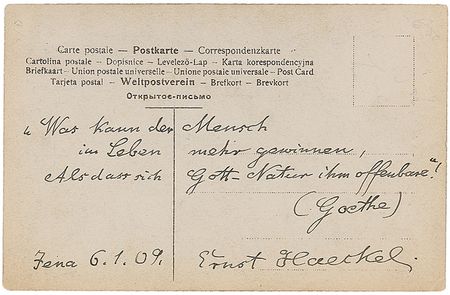 Carte postale — Postkarte — Correspondenzkarte
Cartolina postale – Dopisnice – Levelező-Lap – Karta korespondencyjna
Briefkaart – Union postale universelle – Unione postale universale – Post Card
Tarjeta postal – Weltpostverein – Brefkort – Brevkort
Открытое-письмо
„Was kann der Mensch
im Leben mehr gewinnen,
Als dass sich Gott-Natur ihm offenbare"!
(Goethe)
Jena 6.1.09. Ernst Haeckel.